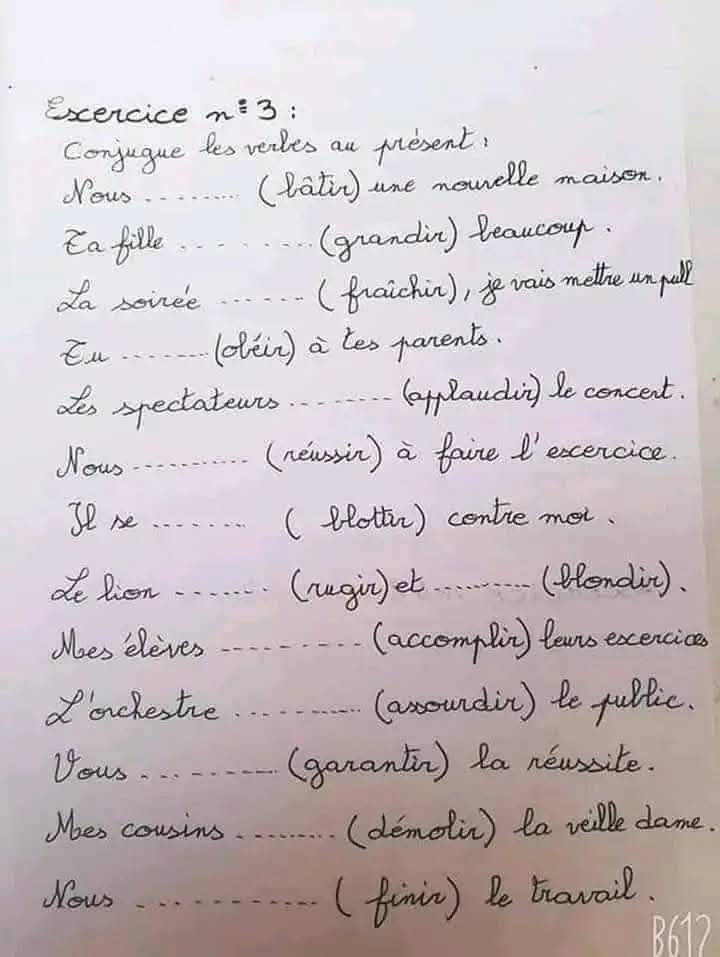 Excercice n° 3 :
Conjugue les verbes au présent :
Nous ........ (bâtir) une nouvelle maison.
Ta fille ......... (grandir) beaucoup.
La soirée ...... (fraîchir), je vais mettre un pull
Tu ....... (obéir) à tes parents.
Les spectateurs ........ (applaudir) le concert.
Nous .......... (réussir) à faire l'excercice.
Il se ........ (blottir) contre moi.
Le lion ....... (rugir) et ........ (blondir).
Mes élèves .......... (accomplir) leurs excercices
L'orchestre .......... (assourdir) le public.
Vous .......... (garantir) la réussite.
Mes cousins ........ (démolir) la veille dame.
Nous ............ (finir) le travail.
B612